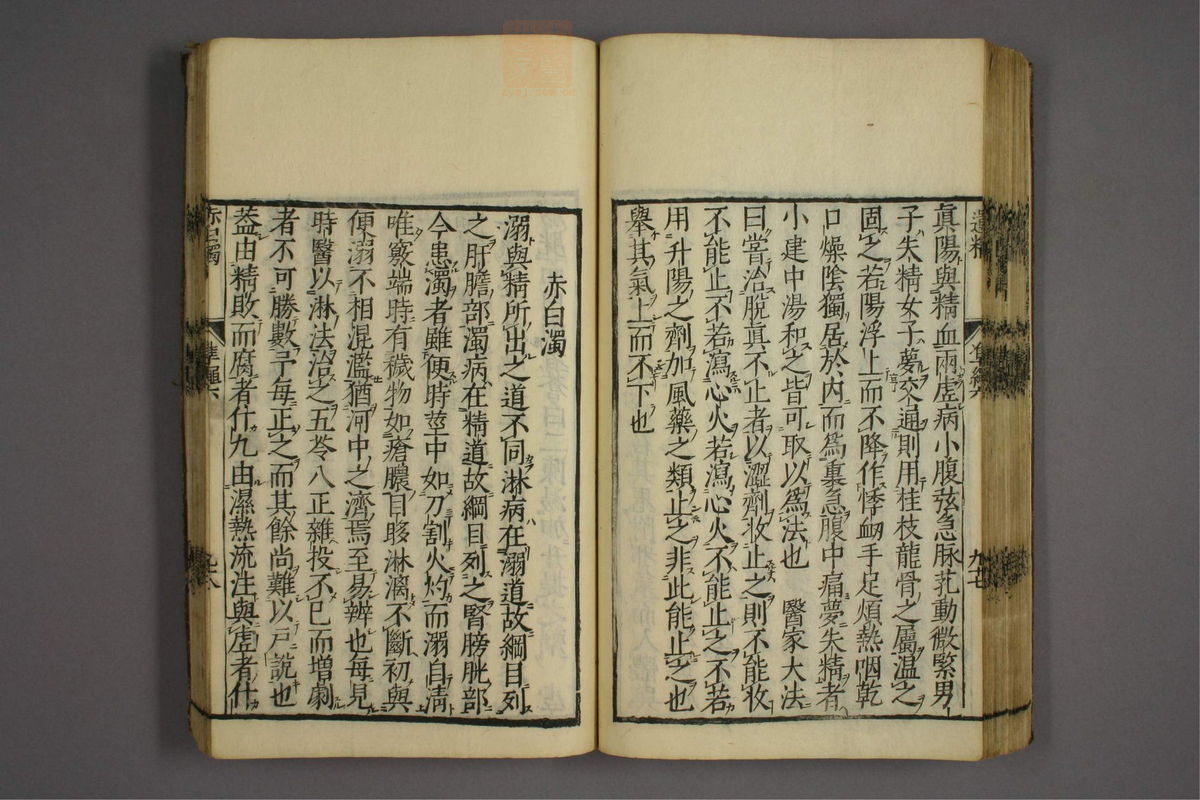 真陽與精血兩虛病小腹弦急脉芤動微緊男
子失精女子夢交通則用桂枝龍骨之屬温之
固之若陽浮上而不降作悸衂手足煩熱咽乾
口燥陰獨居於内而爲裏急腹中痛夢失精者
小建中湯和之皆可取以爲法也　醫家大法
曰嘗治脱真不止者以澀劑收止之則不能收
不能止不若瀉心火若瀉心火不能止之不若
用升陽之劑加風藥之類止之非此能止之也
舉其氣上而不下也
赤白濁
溺與精所出之道不同淋病在溺道故綱目列
之肝膽部濁病在精道故綱目列之腎膀胱部
今患濁者雖便時莖中如刀割火灼而溺自淸
唯竅端時有穢物如瘡膿目眵淋漓不斷初與
便溺不相混濫猶河中之濟焉至易辨也每見
時醫以淋法治之五苓八正雜投不已而增劇
者不可勝數予每正之而其餘尚難以戸說也
葢由精敗而腐者什九由濕熱流注與虛者什
赤白濁
準繩六